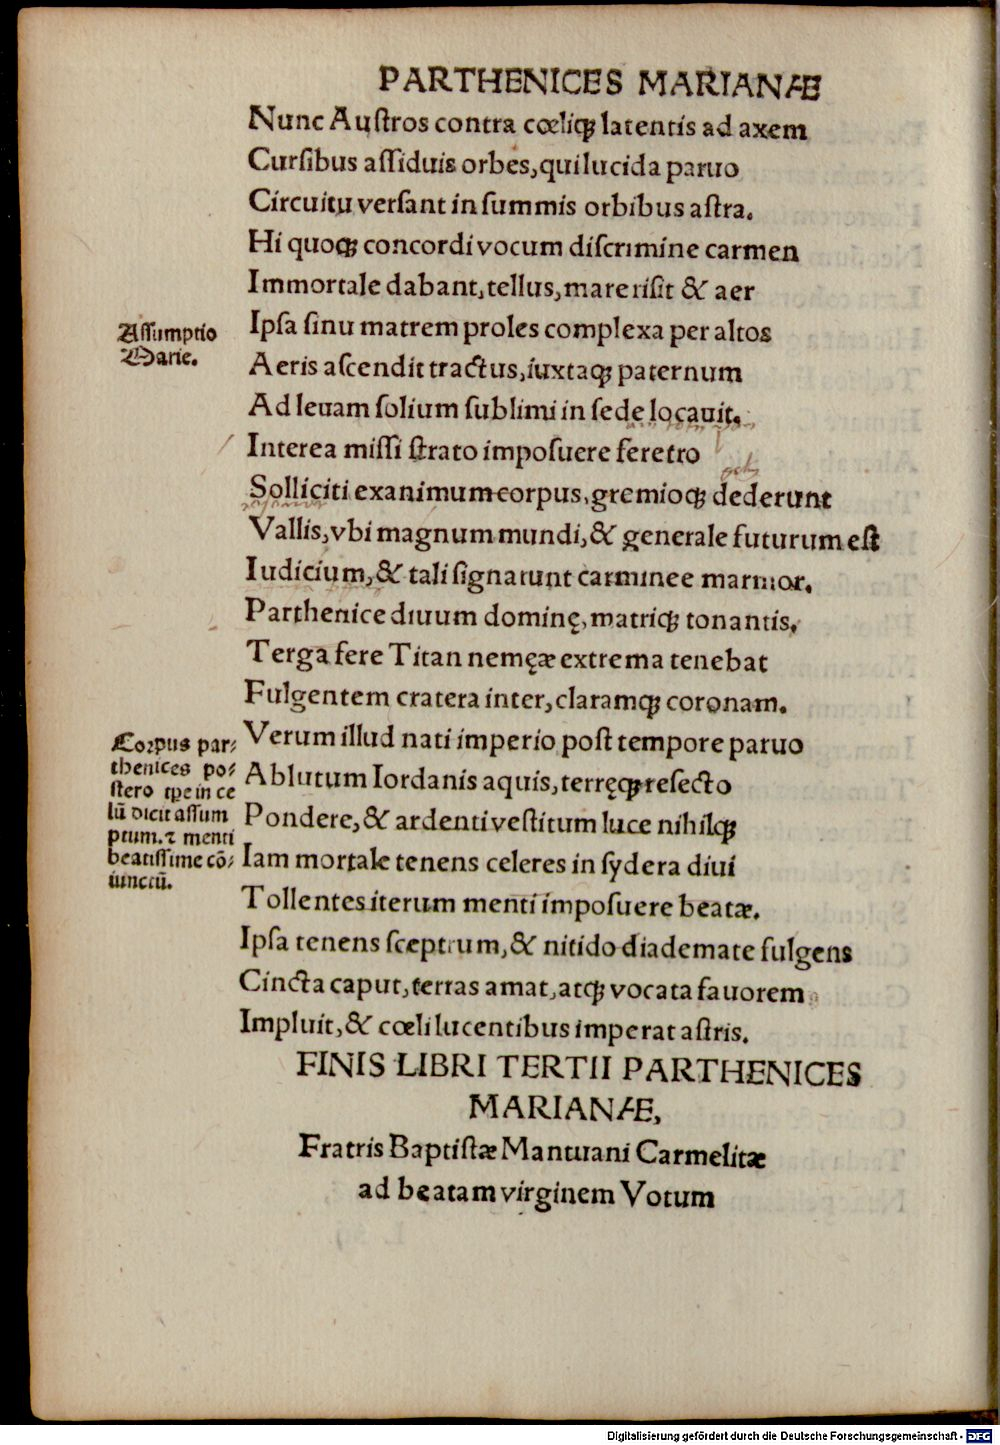 PARTHENICES MARIANÆ
Nunc Auſtros contra cœliqꝫ latentis ad axem
Curſibus aſſiduis orbes, qui lucida paruo
Circuitu verſant in ſummis orbibus aſtra.
Hi quoqꝫ concordi vocum diſcrimine carmen
Immortale dabant, tellus, mare riſit & aer
Aſſumptio
Marie.
Ipſa ſinu matrem proles complexa per altos
Aeris aſcendit tractus, iuxtaqꝫ paternum
Ad leuam ſolium ſublimi in ſede locauit.
Interea miſſi ſtrato impoſuere feretro
Solliciti exanimum corpus, gremioqꝫ dederunt
Vallis, vbi magnum mundi, & generale futurum eſt
Iudicium, & tali ſignarunt carmine e marmor.
Parthenice diuum dominę, matriqꝫ tonantis.
Terga fere Titan nemęæ extrema tenebat
Fulgentem cratera inter, claramqꝫ coronam.
Corpus par⸗
thenices po⸗
ſtero tꝑe in ce
lū dicit aſſum
ptum. ⁊ menti
beatiſſime cō⸗
iunctū.
Verum illud nati imperio poſt tempore paruo
Ablutum Iordanis aquis, terręqꝫ reſecto
Pondere, & ardenti veſtitum luce nihilqꝫ
Iam mortale tenens celeres in ſydera diui
Tollentes iterum menti impoſuere beatæ.
Ipſa tenens ſceptrum, & nitido diademate fulgens
Cincta caput, terras amat, atqꝫ vocata fauorem
Impluit, & cœli lucentibus imperat aſtris.
FINIS LIBRI TERTII PARTHENICES
MARIANÆ,
Fratris Baptiſtæ Mantuani Carmelitæ
ad beatam virginem Votum
Digitalisierung gefördert durch die Deutsche Forschungsgemeinschaft - DFG